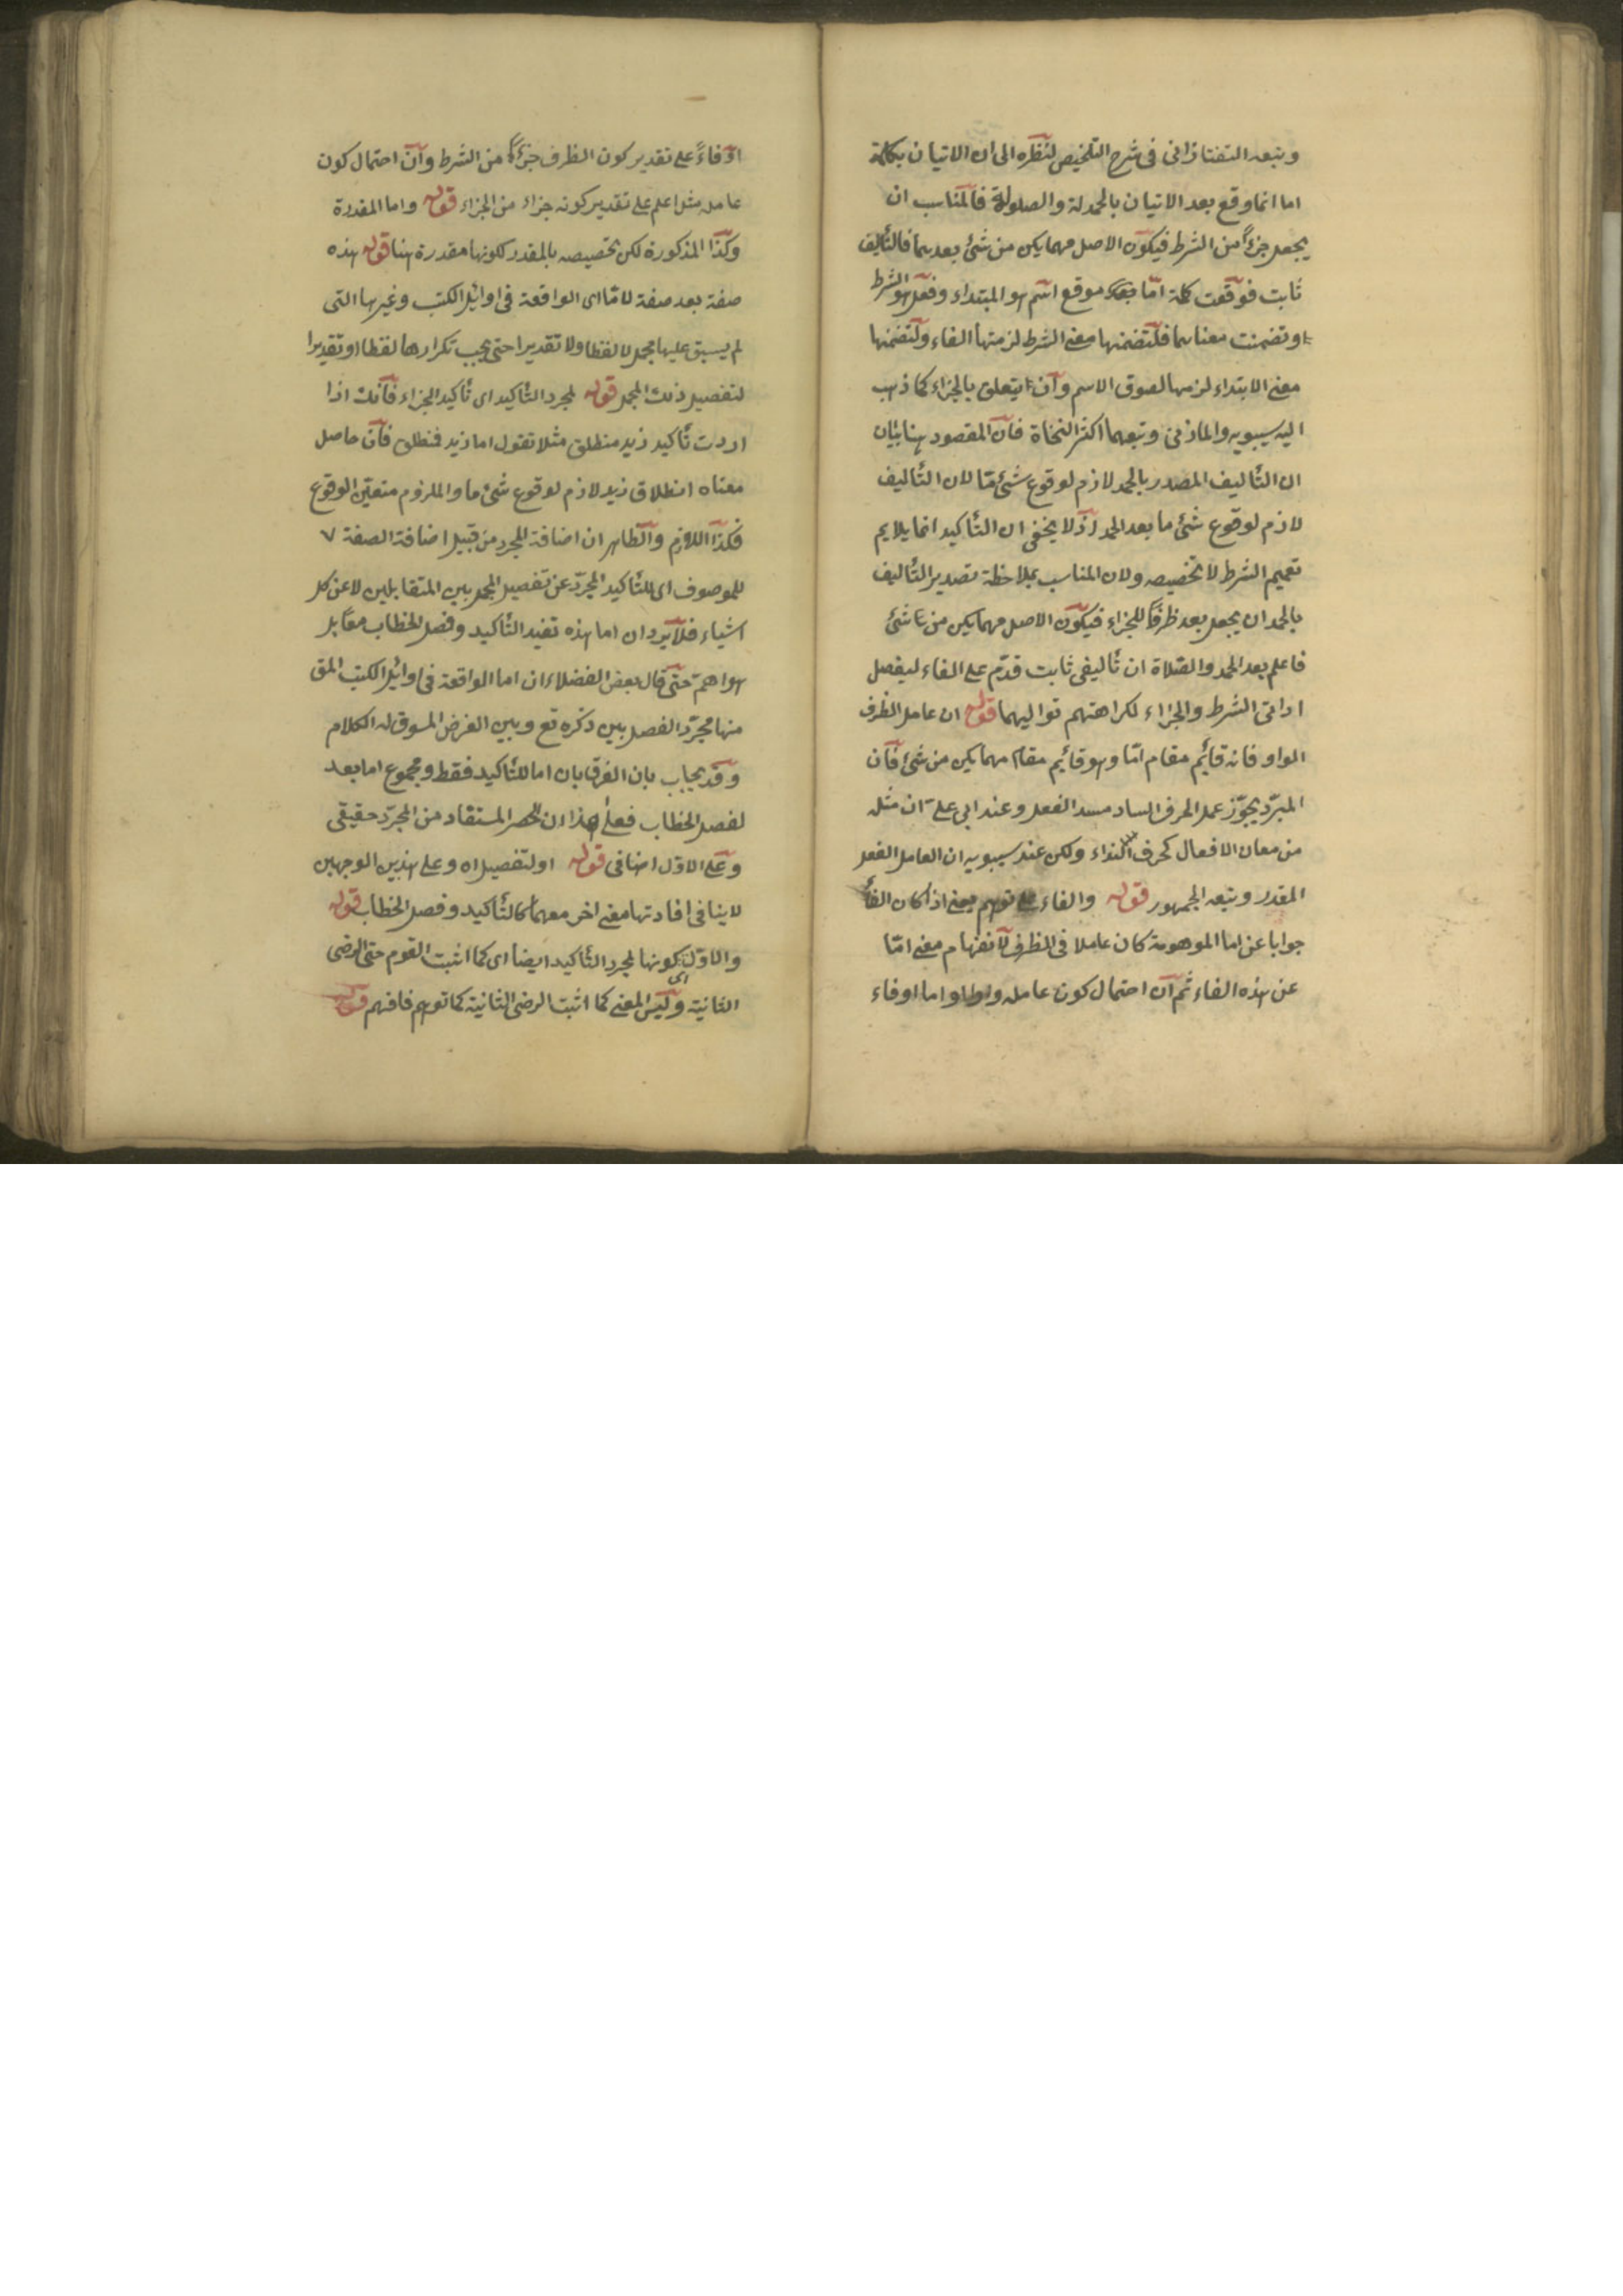 وتبعه التفتازانى فى شرح التلخيص لنظره الى ان الاتيان بكلمة
اما انما وقع بعد الاتيان بالحمدلة والصلولة فالمناسب ان
يجعل جزءًا من الشرط فيكون الاصل مهما يكن من شئ بعدهما فالتأليف
ثابت فوقعت كلمة امّا موقع اسم هو المبتداء وفعل هو الشرط
وتضمنت معناهما فلتضمنها معنى الشرط لزمتها الفاء ولتضمنها
معنى الابتداء لزمها لصوق الاسم وان يتعلق بالجزاء كما ذهب
اليه سيبويه والمازنى وتبعهما اكثر النحاة فان المقصود هنا بيان
ان التأليف المصدر بالحمد لازم لوقوع شئ مّا لان التأليف
لازم لوقوع شئ ما بعد الحمد اذ لا يخفى ان التأكيد انما يلايم
تعميم الشرط لا تخصيصه ولان المناسب بملاحظة تصدير التأليف
بالحمد ان يجعل بعد ظرفًا للجزاء فيكون الاصل مهما يكن من شئ
فاعلم بعد الحمد والصّلاة ان تأليفى ثابت قدّم على الفاء ليفصل
اداتى الشرط والجزاء لكراهتهم تواليهما قوله ان عامل الظرف
الواو فانه قائم مقام امّا وهو قائم مقام مهما يكن من شئ فان
المبرّد يجوّز عمل الحرف الساد مسد الفعل وعند ابى على ان مثله
من معان الافعال كحرف النداء ولكن عند سيبويه ان العامل الفعل
المقدر وتبعه الجمهور قوله والفاء على توهم يعنى اذا كان الفاء
جوابا عن اما الموهومة كان عاملا فى الظرف لانفهام معنى امّا
عن هذه الفاء ثم ان احتمال كون عامله واوا او اما او فاء
او فاءً على تقدير كون الظرف جزءًا من الشرط وان احتمال كون
عامله مثل اعلم على تقدير كونه جزاء من الجزاء قوله واما المقدرة
وكذا المذكورة لكن تخصيصه بالمقدر لكونها مقدرة هنا قوله هذه
صفة بعد صفة لامّا اى الواقعة فى اوائل الكتب وغيرها التى
لم يسبق عليها مجمل لا لفظا ولا تقديرا حتى يجب تكرارها لفظا او تقديرا
لتفصيل ذلك المجمل قوله لمجرد التأكيد اى تأكيد الجزاء فانك اذا
اردت تأكيد زيد منطلق مثلا تقول اما زيد فنطلق فان حاصل
معناه انطلاق زيد لازم لوقوع شئ ما والملزوم متعيّن الوقوع
فكذا اللازم والظاهر ان اضافة المجرد من قبيل اضافة الصفة ٧
للموصوف اى للتأكيد المجرّد عن تفصيل المجمل بين المتقابلين لا عن كل
اشياء فلا يرد ان اما هذه تفيد التأكيد وفصل الخطاب مقابل
هو اهمّ حتى قال بعض الفضلاء ان اما الواقعة فى اوائل الكتب المق
منها مجرّد الفصل بين ذكره تع وبين الغرض المسوق له الكلام
وقد يجاب بان الفرق بان اما للتأكيد فقط ومجموع اما بعد
لفصل الخطاب فعلى هذا ان الحصر المستفاد من المجرّد حقيقى
وعلى الاوّل اضافى قوله او لتفصيل اه وعلى هذين الوجهين
لا ينافى افادتها معنى اخر معهما كالتأكيد وفصل الخطاب قوله
والاوّل اى كونها لمجرد التأكيد ايضا اى كما اثبت القوم حتى الرضى
الثانية وليس المعنى كما اثبت الرضى الثانية كما توهم فافهم قوله